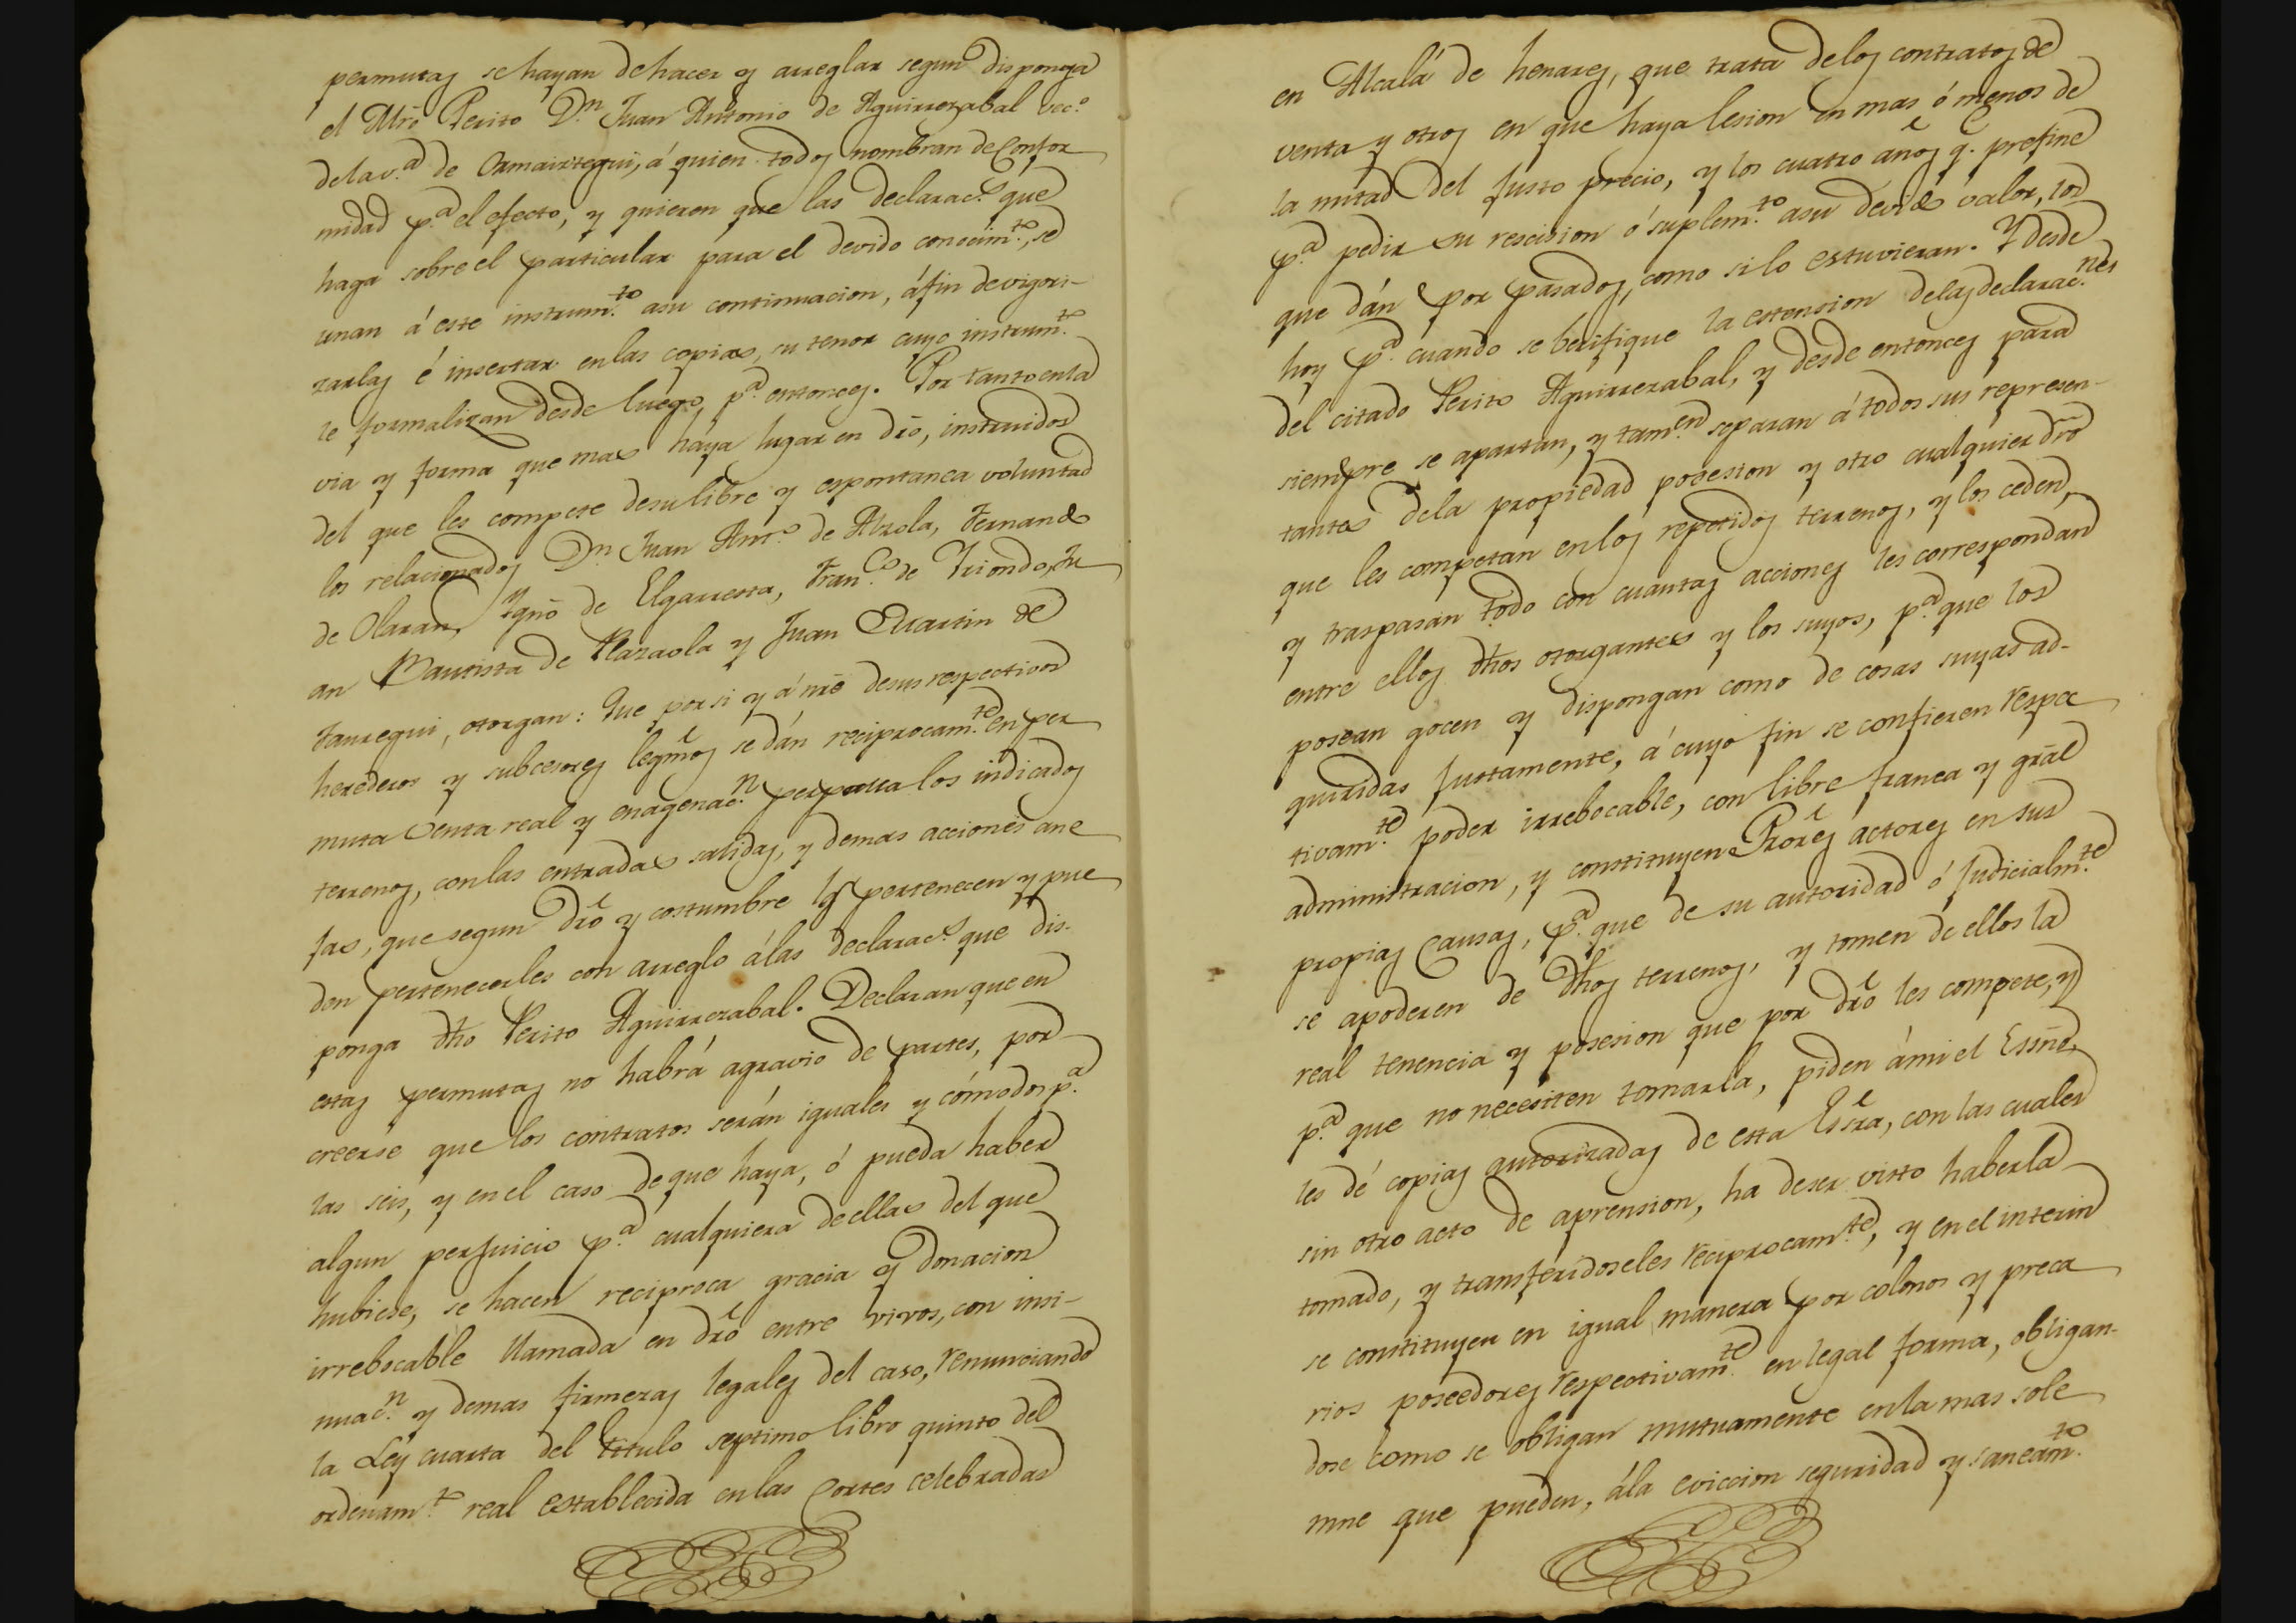 permutas se hayan de hacer y arreglar segun disponga
el Mrõ Perito D.n Juan Antonio de Aguirrezabal vec.o
dela v.a de Ormaiztegui, á quien todos nombran de Confor
midad p.a el efecto, y quieren que las declarac.s que
haga sobre el particular para el devido conocim.to, se
unan á este instrum.to asu continuacion, áfin de vigori-
zarlas é insertar enlas copias, su tenor cuyo instrum.to
le formalizan desde luego p.a entonces. Por tanto enla
via y forma que mas haya lugar en dr̃o, instruidos
del que les compete desu libre y espontanea voluntad
los relacionados D.n Juan Ant.o de Alzola, Fernando
de Olaran, Ygñõ de Elgarresta, Fran.co de Yriondo, Ju
an Bautista de Plazaola y Juan Martin de
Jauregui, otorgan: Que por si y á nr̃e desus respectivos
herederos y subcesores legm̃os se dán reciprocam.te en per
muta venta real y enagenac.n perpetua los indicados
terrenos, con las entradas salidas, y demas acciones ane
jas, que segun dr̃o y costumbre les pertenecen y pue
den pertenecerles con arreglo álas declarac.s que dis-
ponga dh̃o Perito Aguirrezabal. Declaran que en
estas permutas no habrá agravio de partes, por
creerse que los contratos serán iguales y cómodos p.a
las seis, y en el caso de que haya, ó pueda haber
algun perjuicio p.a cualquiera de ellas del que
hubiese, se hacen reciproca gracia y donacion
irrebocable llamada en dr̃o entre vivos, con insi-
nuac.n y demas firmezas legales del caso, renunciando
la Ley cuarta del titulo septimo libro quinto del
ordenam.to real establecida en las Cortes celebradas
en Alcalá de henares, que trata delos contratos de
venta y otros en que haya lesion en mas ó menos de
la mitad del justo precio, y los cuatro años q.e prefine
p.a pedir su rescision ó suplem.to asu devido valor, los
que dán por pasados, como si lo estuvieran. Y desde
hoy p.a cuando se berifique la estension delas declarac.nes
del citado Perito Aguirrezabal, y desde entonces para
siempre se apartan, y tam.en separan á todos sus represen-
tantes dela propiedad posesion y otro cualquier dr̃o
que les competan en los repetidos terrenos, y los ceden,
y traspasan todo con cuantas acciones les correspondan
entre ellos dh̃os otorgantes y los suyos, p.a que los
posean gocen y dispongan como de cosas suyas ad-
quiridas justamente, á cuyo fin se confieren respec
tivam.te poder irrebocable, con libre franca y gr̃al
administracion, y constituyen Pror̃es actores en sus
propias Causas, p.a que de su autoridad ó judicialm.te
se apoderen de dh̃os terrenos, y tomen de ellos la
real tenencia y posesion que por dr̃o les compete, y
p.a que no necesiten tomarla, piden ámi el Essnõ,
les dé copias autorizadas de esta Essr̃a, con las cuales
sin otro acto de aprension, ha deser visto haberla
tomado, y transferidoseles reciprocam.te, y en el interin
se constituyen en igual manera por colonos y preca
rios poseedores respectivam.te en legal forma, obligan-
dose como se obligan mutuamente enla mas sole
mne que pueden, ála eviccion seguridad y saneam.to